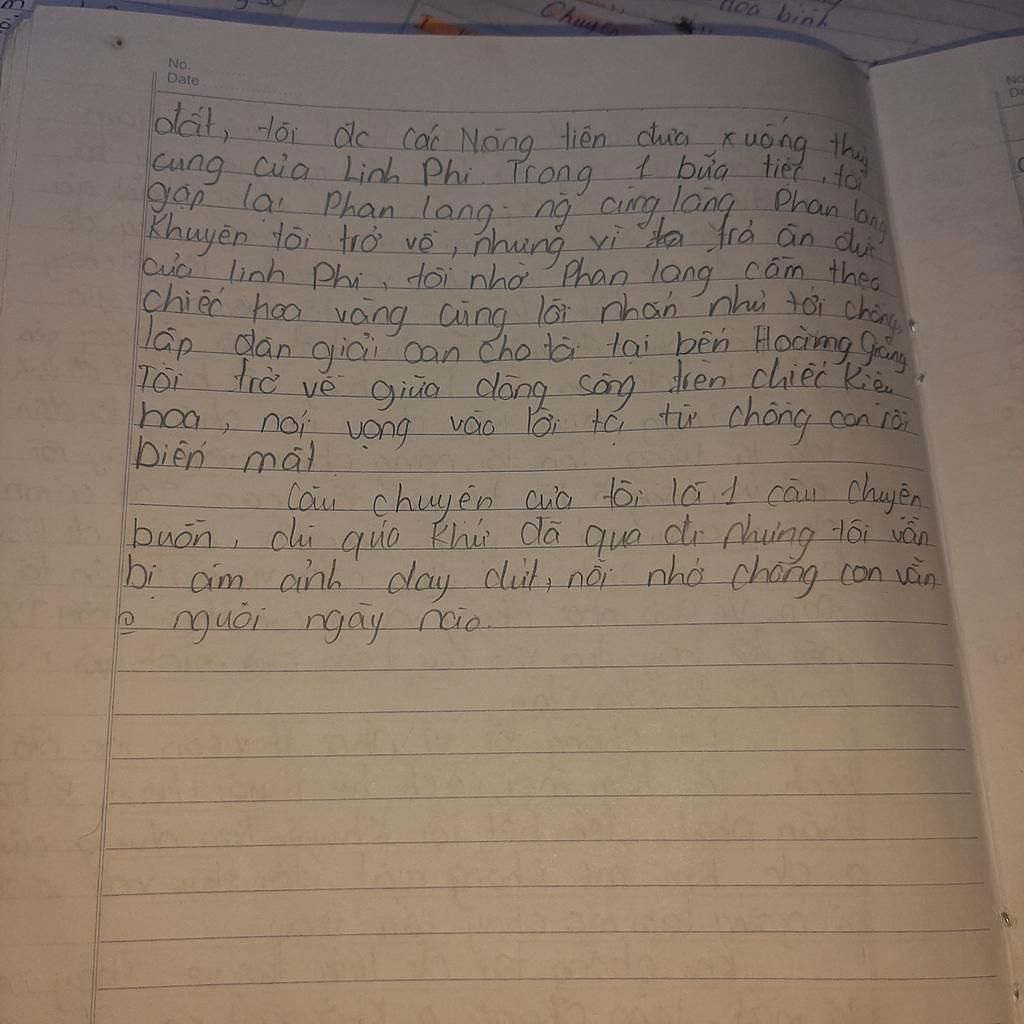 Chuyện
Hoà bình
No.
Date
đất, tôi đc các Nàng tiên đưa xuống thuỷ
cung của Linh Phi. Trong 1 bữa tiệc, tôi
gặp lại Phan lang - ng cùng làng. Phan lang
Khuyên tôi trở về, nhưng vì trả ân đức
của linh Phi, tôi nhờ Phan lang cầm theo
chiếc hoa vàng cùng lời nhắn nhủ tới chồng
lập đàn giải oan cho tôi tại bến Hoàng Giang
Tôi trở về giữa dòng sông trên chiếc Kiệu
hoa, nói vọng vào lời tạ từ chồng con rồi
biến mất
Câu chuyện của tôi là 1 câu chuyện
buồn, dù quá Khứ đã qua đi nhưng tôi vẫn
bị ám ảnh day dứt, nỗi nhớ chồng con vẫn
người ngày nào.